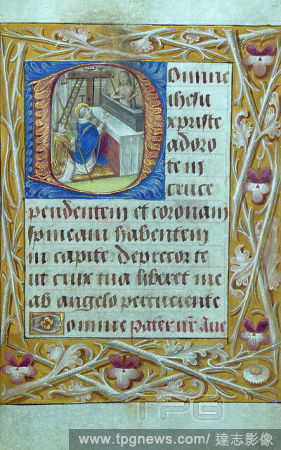 Domine
ihesu
xpriste
adoro
te in
cruce
pendentem et coronam
spineam habentem
in capite. deprecor te
ut crux tua liberet me
ab angelo percuciente
Domine Pater nr. Aue
TPG
www.tpgnews.com/達志影像